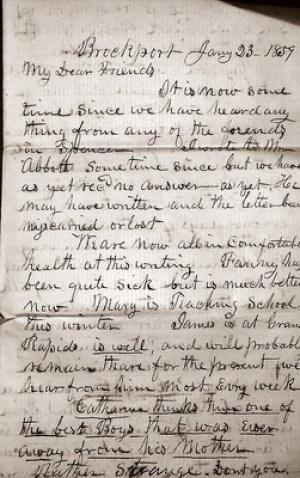 Brockport Jany 23 - 1859
My Dear Friends
It is now some
time since we have heard any
thing from any of the friends
in Spencer I wrote to Mr
Abbott Some time since but we have
as yet recd no answer as yet, He
may have written and the letter been
miscarried or lost
We are now all in comfortable
health at this writing Fanny has
been quite sick but is much better
now Mary is Teaching School
this winter James is at Grand
Rapids is well, and will probabl
remain thare for the present, we
hear from him most Evry week
Catharine thinks him one of
the best Boys that was Ever
away from his Mother
Rather Strange Dont you